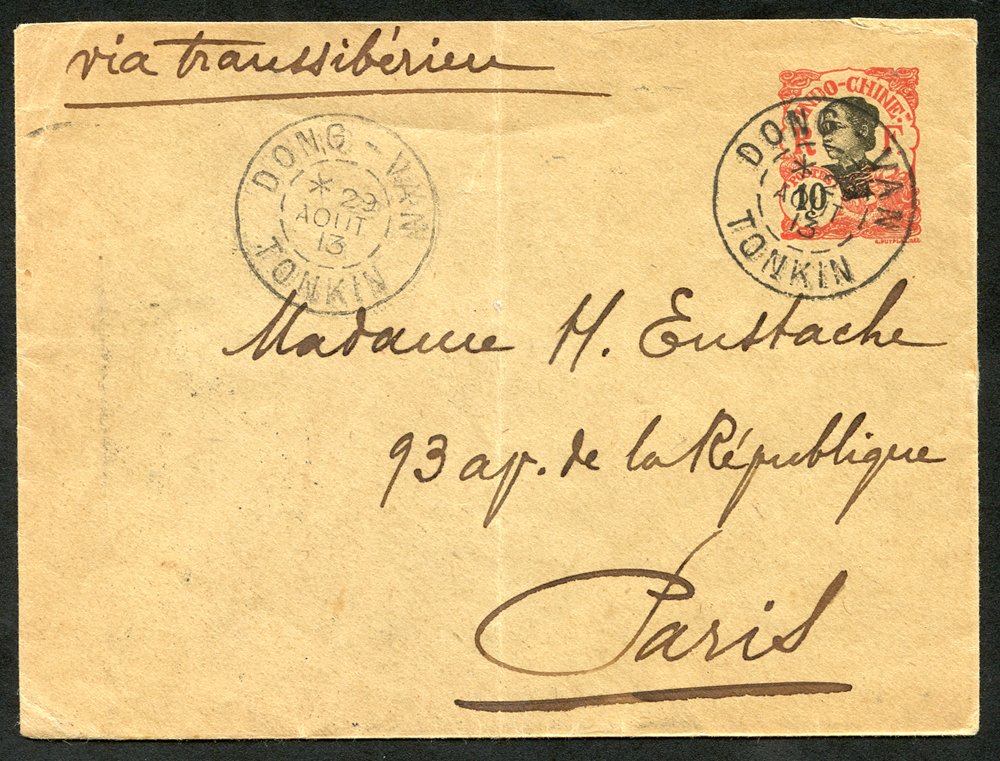 via transsibérien
INDO-CHINE
10
DONG-VAN
* 29
AOUT
13
TONKIN
DONG-VAN
*
AOUT
13
TONKIN
Madame H. Eustache
93 av. de la République
Paris